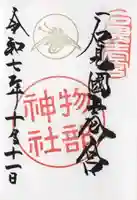 石見國一宮
物部
神社
令和七年十月十一日